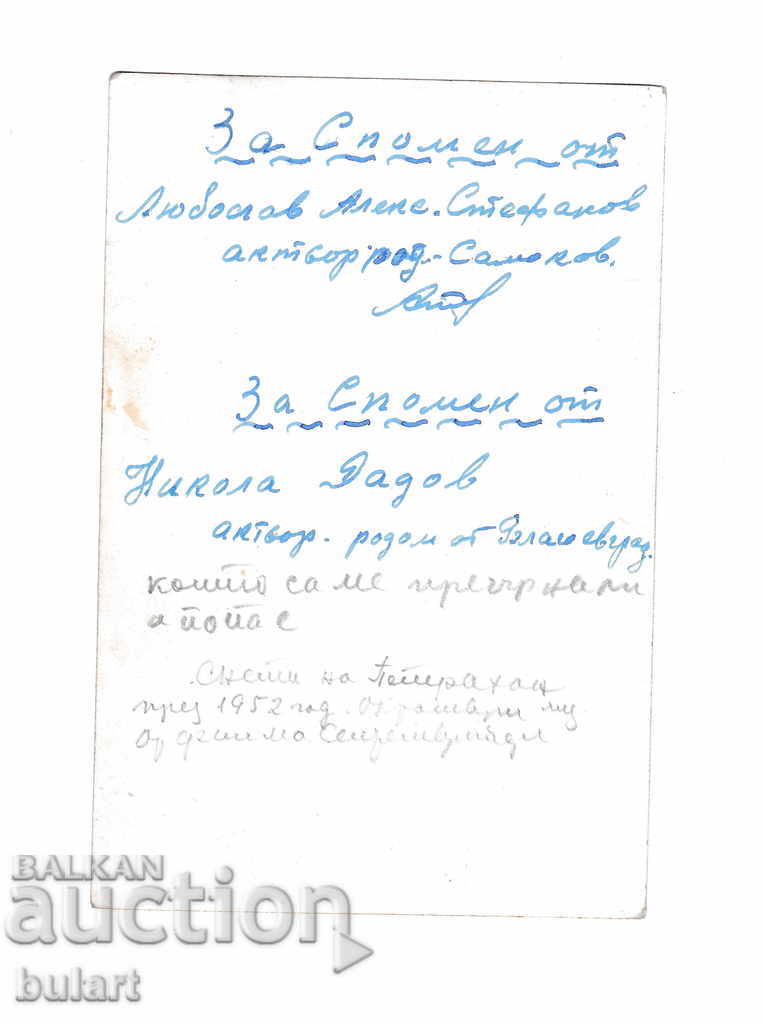 За Спомен от
Любослав Алекс. Стефанов
актьор род. Самоков.
За Спомен от
Никола Дадов
актьор. родом от Благоевград.
които са ме прегърнали
и попа с
Снети на Петрахан
през 1952 год. Октомври м-ц
От филма Септемврийци
BALKAN
auction
bulart